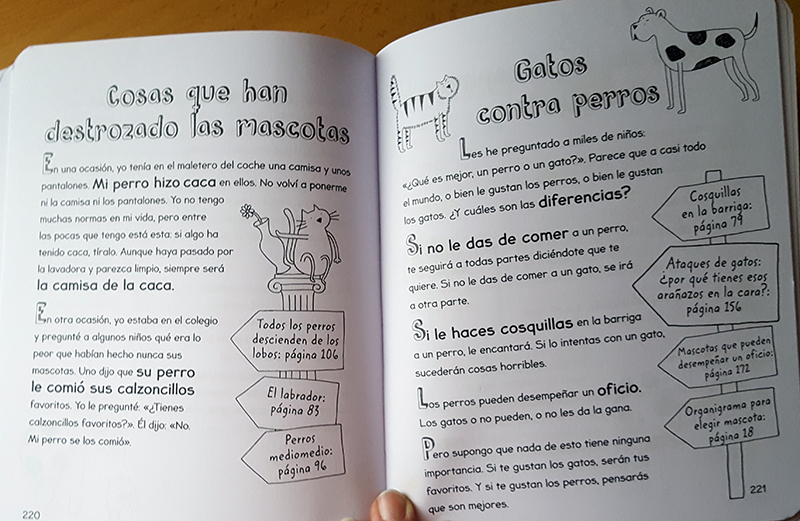 Cosas que han
destrozado las mascotas
En una ocasión, yo tenía en el maletero del coche una camisa y unos
pantalones. Mi perro hizo caca en ellos. No volví a ponerme
ni la camisa ni los pantalones. Yo no tengo
muchas normas en mi vida, pero entre
las pocas que tengo está esta: si algo ha
tenido caca, tíralo. Aunque haya pasado por
la lavadora y parezca limpio, siempre será
la camisa de la caca.
En otra ocasión, yo estaba en el colegio
y pregunté a algunos niños qué era lo
peor que habían hecho nunca sus
mascotas. Uno dijo que su perro
le comió sus calzoncillos
favoritos. Yo le pregunté: «¿Tienes
calzoncillos favoritos?». Él dijo: «No.
Mi perro se los comió».
Todos los perros
descienden de los
lobos: página 106
El labrador:
página 83
Perros
mediomedio:
página 96
220
Gatos
contra perros
Les he preguntado a miles de niños:
«¿Qué es mejor, un perro o un gato?». Parece que a casi todo
el mundo, o bien le gustan los perros, o bien le gustan
los gatos. ¿Y cuáles son las diferencias?
Si no le das de comer a un perro,
te seguirá a todas partes diciéndote que te
quiere. Si no le das de comer a un gato, se irá
a otra parte.
Si le haces cosquillas en la barriga
a un perro, le encantará. Si lo intentas con un gato,
sucederán cosas horribles.
Los perros pueden desempeñar un oficio.
Los gatos o no pueden, o no les da la gana.
Pero supongo que nada de esto tiene ninguna
importancia. Si te gustan los gatos, serán tus
favoritos. Y si te gustan los perros, pensarás
que son mejores.
Cosquillas
en la barriga:
página 79
Ataques de gatos:
¿por qué tienes esos
arañazos en la cara?:
página 156
Mascotas que pueden
desempeñar un oficio:
página 172
Organigrama para
elegir mascota:
página 18
221